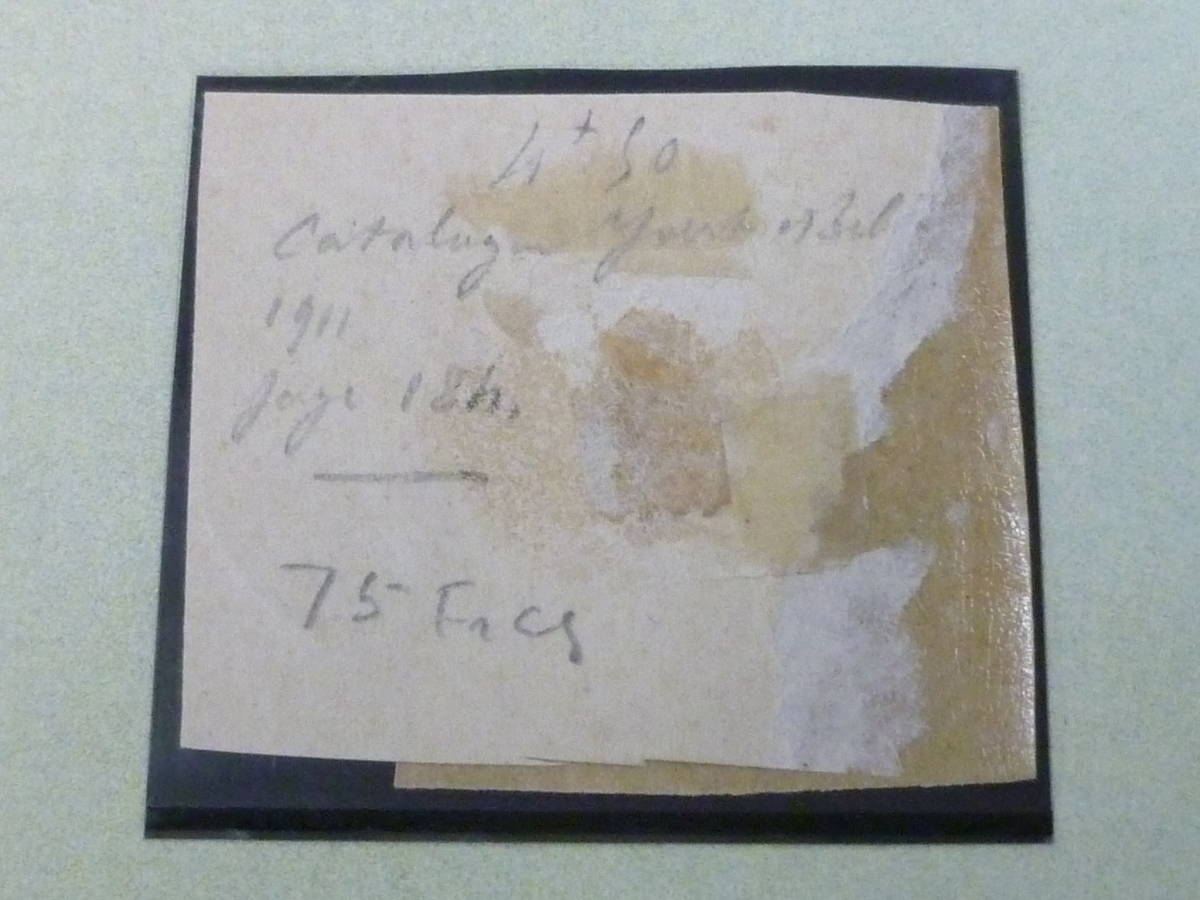 4+50
Catalogue Yvert et
1911
page 184.
75 Frcs